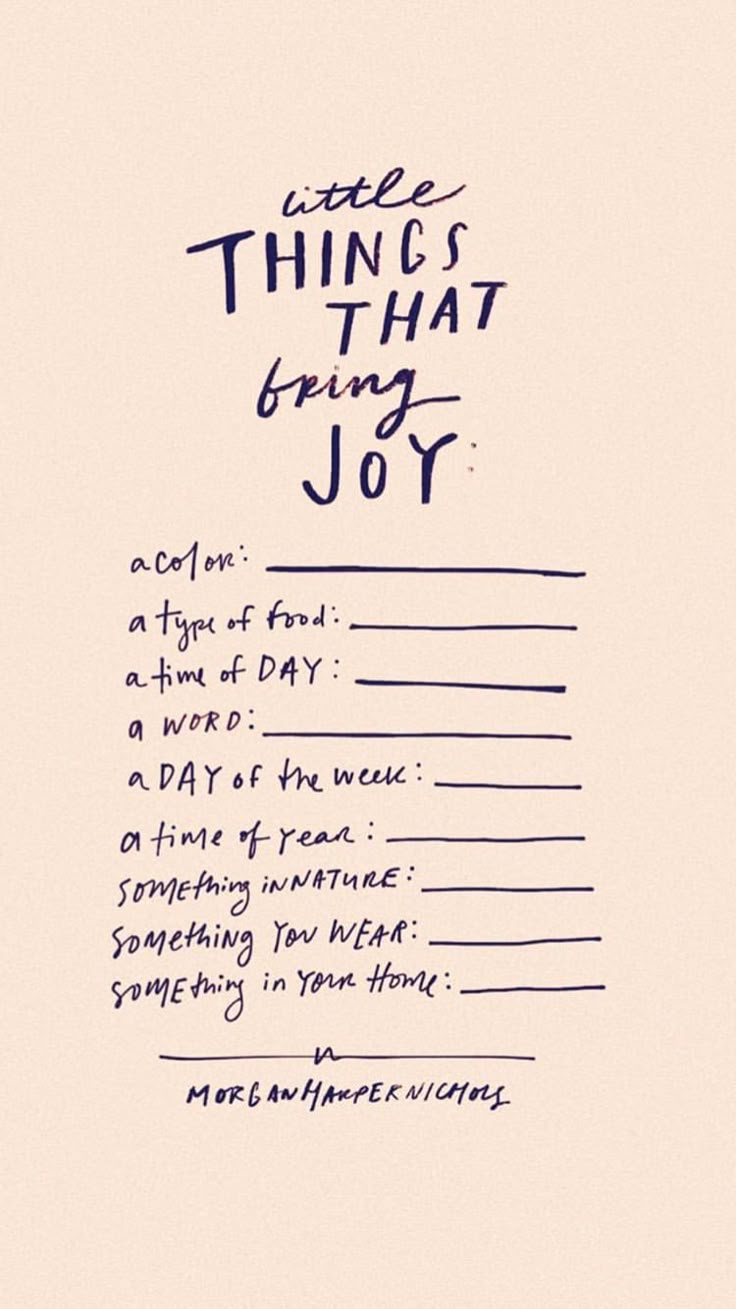 little
THINGS
THAT
bring
JOY:
a color:
a type of food:
a time of DAY:
a WORD:
a DAY of the week:
a time of year:
SOMEthing in NATURE:
SOMEthiNG YOU WEAR:
SOMEthing in Your Home:
MORGAN HARPER NICHOLS